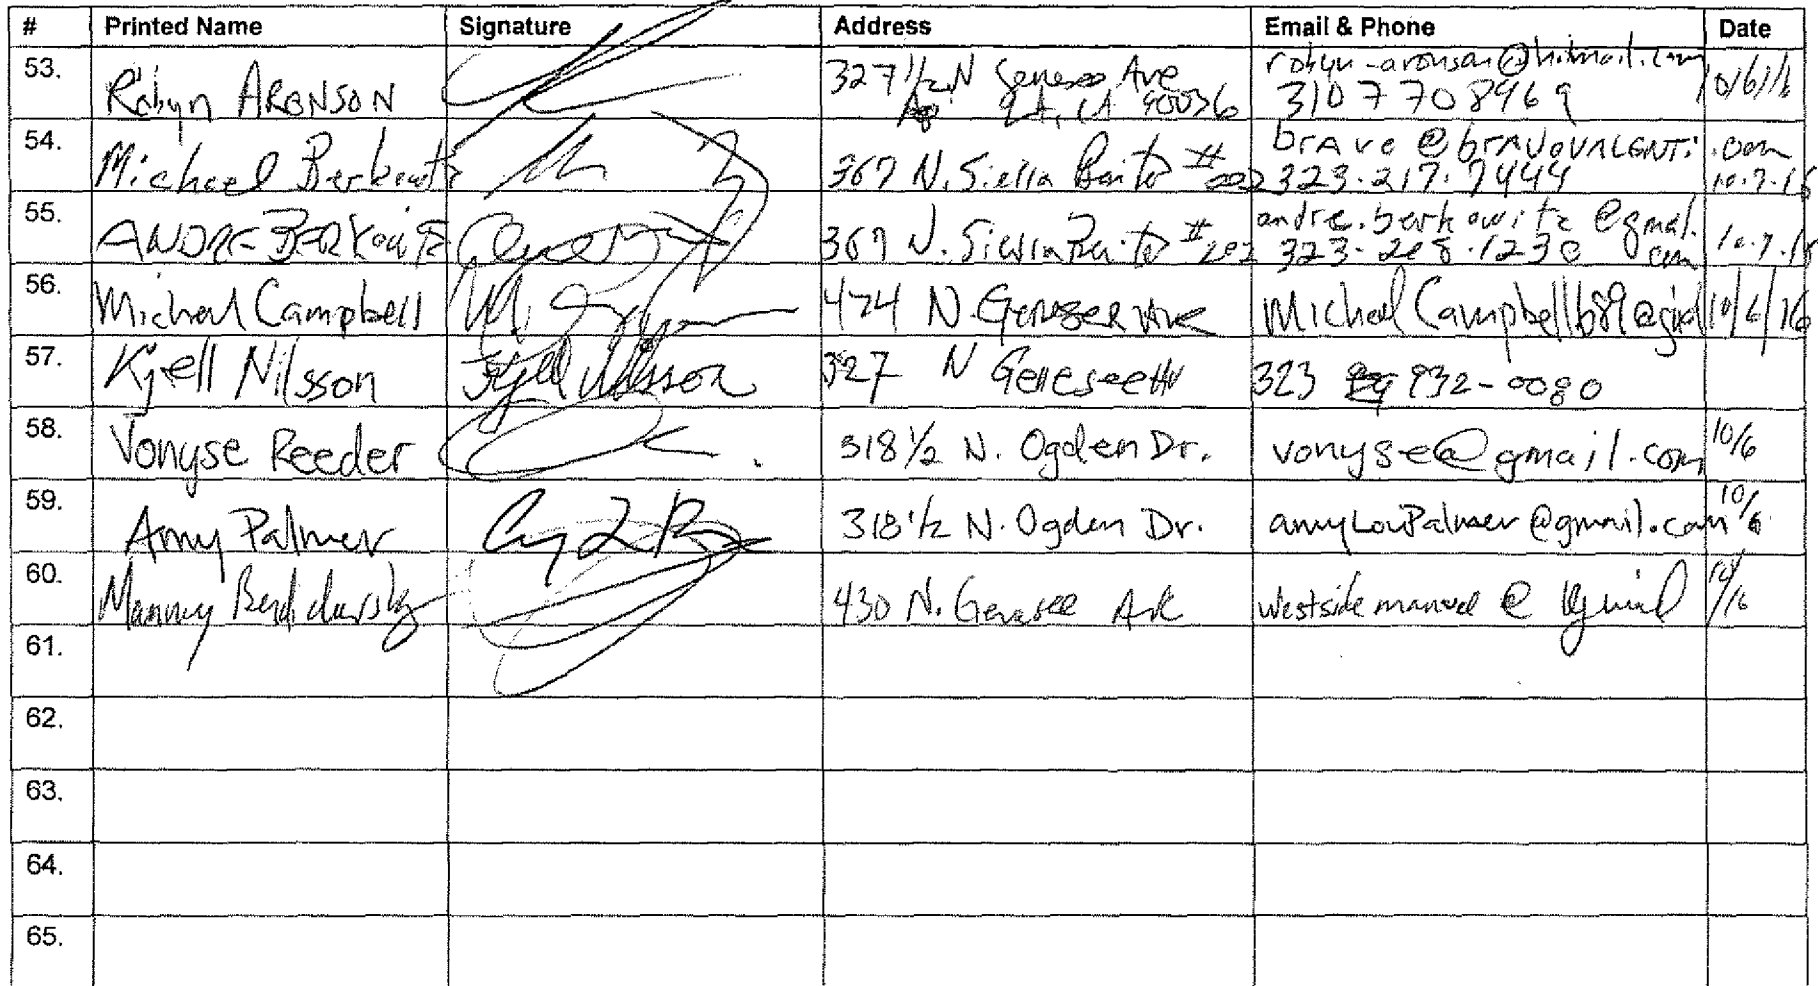 # Printed Name Signature Address Email & Phone Date
53. Robyn ARONSON 327 1/2 N Genesee Ave robyn-aronson@hotmail.com 10/6/16
LA, CA 90036 310 7708969
54. Michael Berkowitz 367 N. Sierra Bonita # bravo@bravovalenti.com
323.217.7444 10.7.16
55. ANDRE BERKowitz 367 N. Sierra Bonita #202 andre.berkowitz@gmail.com
323.208.1230 10.7.16
56. Michael Campbell 474 N Genesee Ave Michael Campbell689@gmail 10/6/16
57. Kjell Nilsson Kjell Nilsson 327 N Genesee Av 323 932-0080
58. Vonyse Reeder 318 1/2 N. Ogden Dr. vonyse@gmail.com 10/6
59. Amy Palmer 318 1/2 N. Ogden Dr. amyLouPalmer@gmail.com 10/6
60. Manny 430 N. Genesee Ave westside manuel @ 10/6
61.
62.
63.
64.
65.